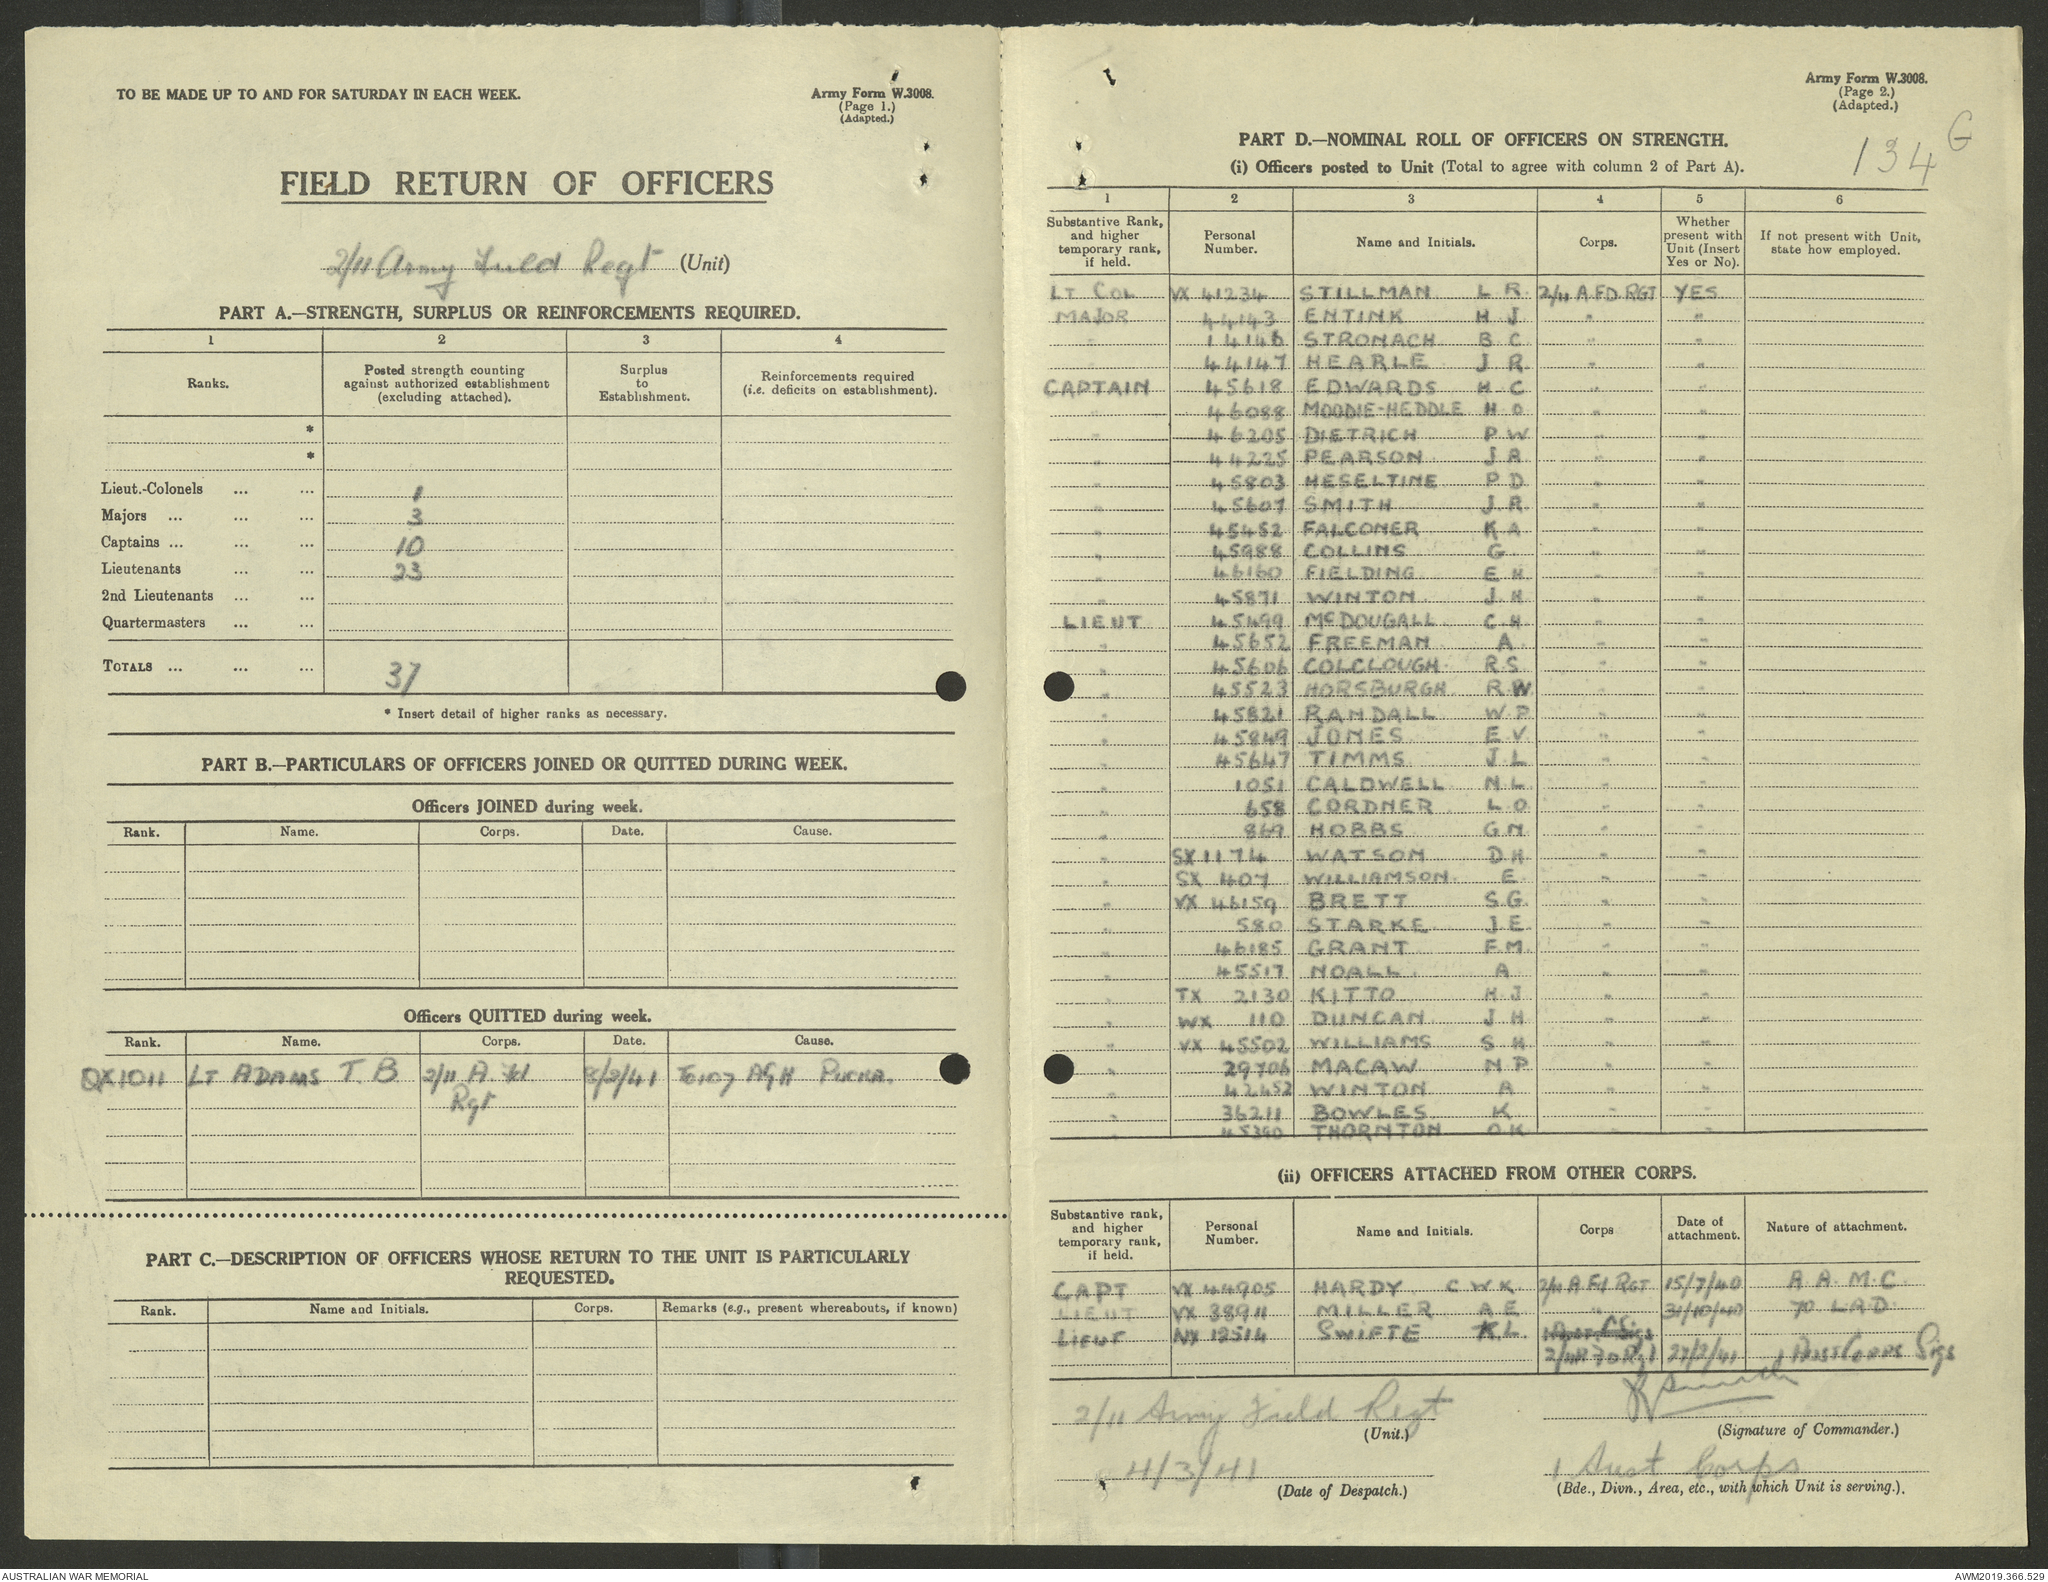 TO BE MADE UP TO AND FOR SATURDAY IN EACH WEEK.
Army Form W.3008.
(Page 1.)
(Adapted.)
FIELD RETURN OF OFFICERS
2/11 Army Field Regt (Unit)
PART A.—STRENGTH, SURPLUS OR REINFORCEMENTS REQUIRED.
1 2 3 4
Ranks. Posted strength counting against authorized establishment (excluding attached). Surplus to Establishment. Reinforcements required (i.e. deficits on establishment).
*
*
Lieut.-Colonels ... ... 1
Majors ... ... ... 3
Captains ... ... ... 10
Lieutenants ... ... 23
2nd Lieutenants ... ...
Quartermasters ... ...
TOTALS ... ... ... 37
* Insert detail of higher ranks as necessary.
PART B.—PARTICULARS OF OFFICERS JOINED OR QUITTED DURING WEEK.
Officers JOINED during week.
Rank. Name. Corps. Date. Cause.
Officers QUITTED during week.
Rank. Name. Corps. Date. Cause.
QX1011 LT ADAMS T. B 2/11 A. Fd 8/2/41 To 107 AGH PUCKA.
Rgt
PART C.—DESCRIPTION OF OFFICERS WHOSE RETURN TO THE UNIT IS PARTICULARLY
REQUESTED.
Rank. Name and Initials. Corps. Remarks (e.g., present whereabouts, if known)
Army Form W.3008.
(Page 2.)
(Adapted.)
134 G
PART D.—NOMINAL ROLL OF OFFICERS ON STRENGTH.
(i) Officers posted to Unit (Total to agree with column 2 of Part A).
1 2 3 4 5 6
Substantive Rank, and higher temporary rank, if held. Personal Number. Name and Initials. Corps. Whether present with Unit (Insert Yes or No). If not present with Unit, state how employed.
LT COL VX 41234 STILLMAN L R 2/11 A.FD.RGT YES
MAJOR 44143 ENTINK H J " "
" 14146 STRONACH B C " "
" 44147 HEARLE J R " "
CAPTAIN 45618 EDWARDS H C " "
" 46088 MOODIE-HEDDLE H O " "
" 46205 DIETRICH P W " "
" 44225 PEARSON J R " "
" 45803 HESELTINE P D " "
" 45607 SMITH J. R " "
" 45452 FALCONER K A " "
" 45988 COLLINS G " "
" 46160 FIELDING E H " "
" 45871 WINTON J. H " "
LIEUT 45499 McDOUGALL C H " "
" 45652 FREEMAN A " "
" 45606 COLCLOUGH R S " "
" 45523 HORSBURGH R W " "
" 45821 RANDALL W P " "
" 45849 JONES E V " "
" 45647 TIMMS J. L " "
" 1051 CALDWELL N L " "
" 658 CORDNER L O " "
" 869 HOBBS G N " "
" SX 1174 WATSON D H " "
" SX 407 WILLIAMSON E " "
" VX 46159 BRETT S.G. " "
" 580 STARKE J E " "
" 46185 GRANT F M " "
" 45517 NOALL A " "
" TX 2130 KITTO H J " "
" WX 110 DUNCAN J H " "
" VX 45502 WILLIAMS S H " "
" 29706 MACAW N P " "
" 42452 WINTON A " "
" 36211 BOWLES K " "
" 45390 THORNTON O K " "
(ii) OFFICERS ATTACHED FROM OTHER CORPS.
Substantive rank, and higher temporary rank, if held. Personal Number. Name and Initials. Corps Date of attachment. Nature of attachment.
CAPT VX 44905 HARDY C W K 2/11 A Fd RGT 15/7/40 A. A. M. C.
LIEUT VX 38911 MILLER A E " 31/10/40 70 LAD
LIEUT NX 12514 SWIFTE K L
2/11 A Fd Rgt 27/2/41 1 Aust Corps Sigs
2/11 Army Field Regt
(Unit.)
(Signature of Commander.)
4/3/41
(Date of Despatch.)
1 Aust Corps
(Bde., Divn., Area, etc., with which Unit is serving.).
AUSTRALIAN WAR MEMORIAL
AWM2019.366.529